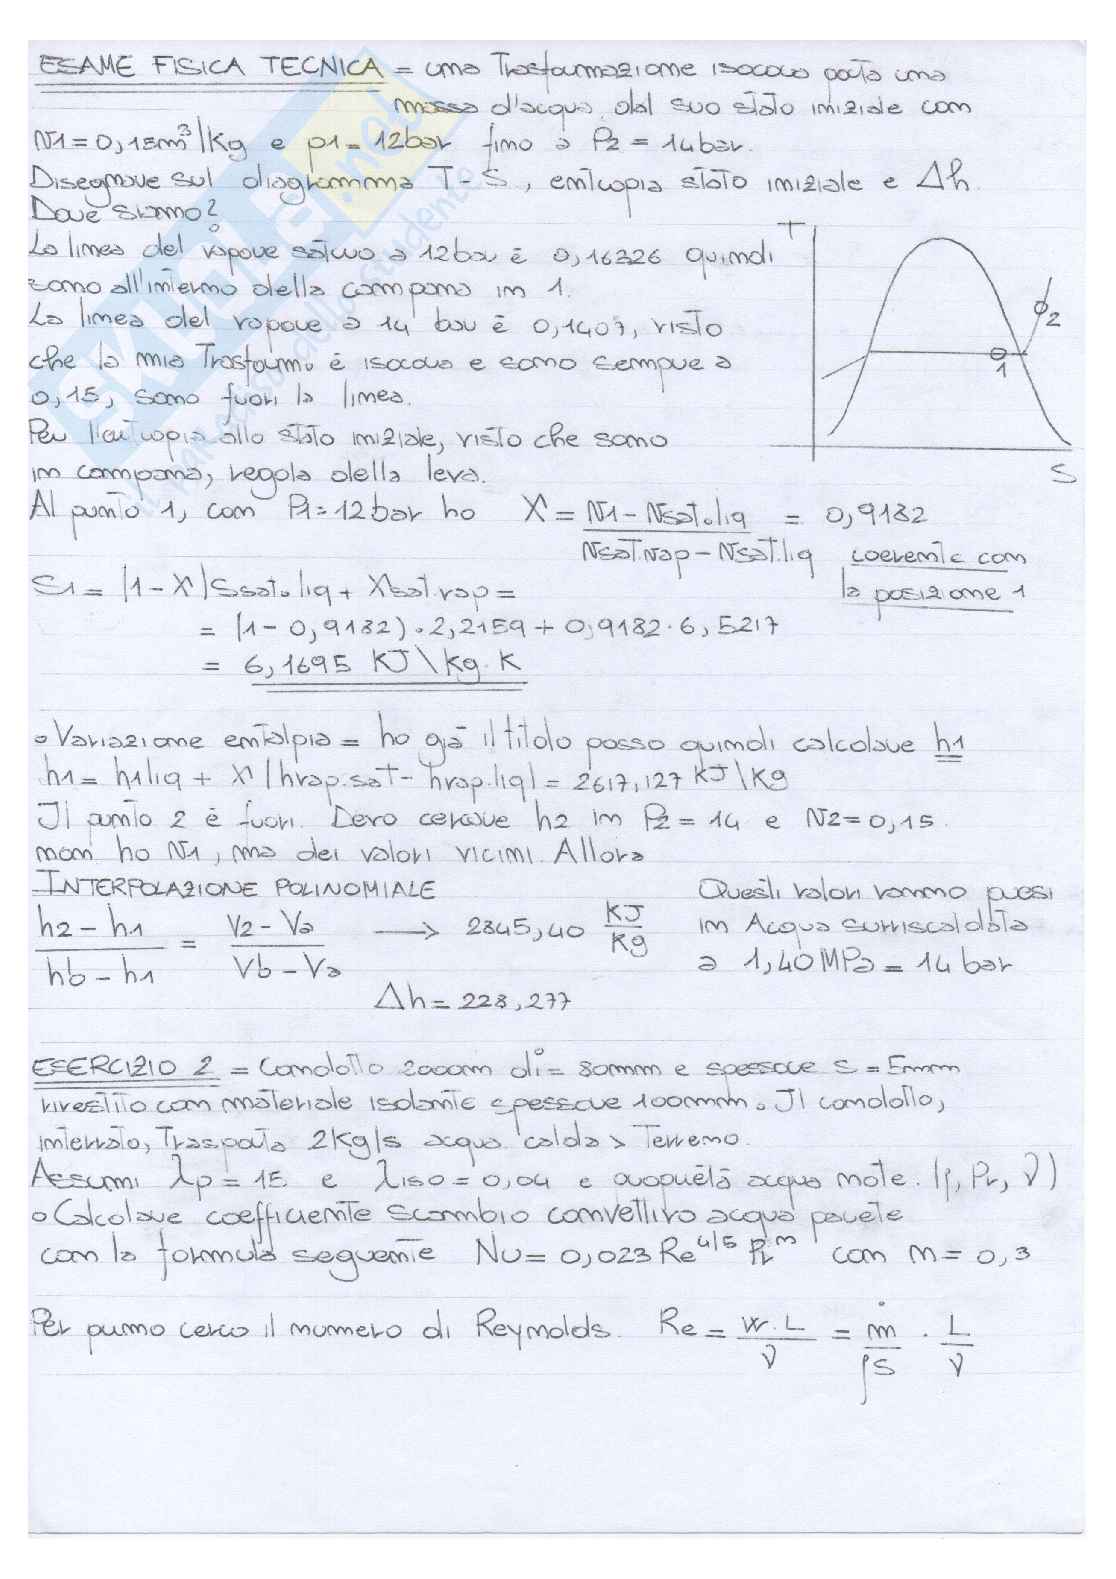 ESAME FISICA TECNICA = una Trasformazione isocora porta una
massa d'acqua dal suo stato iniziale con
v1 = 0,15m³/Kg e p1 = 12bar fino a P2 = 14bar.
Disegnare sul diagramma T-S, entropia stato iniziale e Δh.
Dove siamo?
La linea del vapore saturo a 12bar è 0,16326 quindi
sono all'interno della campana in 1.
La linea del vapore a 14 bar è 0,1407, visto
che la mia Trasform. è isocora e sono sempre a
0,15, sono fuori la linea.
Per l'entropia allo stato iniziale, visto che sono
in campana, regola della leva.
T
1
2
S
Al punto 1, con P1=12bar ho X = v1 - vsat.liq / vsat.vap - vsat.liq = 0,9182
coerente con
la posizione 1
S1 = (1-X) Ssat.liq + X sat.vap =
= (1-0,9182)·2,2159 + 0,9182·6,5217
= 6,1695 KJ\kg.K
o Variazione entalpia = ho già il titolo posso quindi calcolare h1
h1 = h1liq + X (hvap.sat - hvap.liq) = 2617,127 KJ\Kg
Il punto 2 è fuori. Devo cercare h2 in P2 = 14 e v2=0,15.
non ho v1, ma dei valori vicini. Allora
INTERPOLAZIONE POLINOMIALE
h2 - h1 / hb - h1 = V2 - Va / Vb - Va → 2845,40 KJ/Kg
Δh = 228,277
Questi valori vanno presi
in Acqua surriscaldata
a 1,40MPa = 14bar
ESERCIZIO 2 = Condotto 2000m di = 80mm e spessore s = 5mm
rivestito con materiale isolante spessore 100mm. Il condotto,
interrato, Trasporta 2Kg/s acqua calda > Terreno.
Assumi λp = 15 e λiso = 0,04 e proprietà acqua note. (ρ, Pr, ν)
o Calcolare coefficiente scambio convettivo acqua parete
con la formula seguente Nu = 0,023 Re^4/5 Pr^n con n = 0,3
Per primo cerco il numero di Reynolds. Re = w.L / ν = ṁ / ρS · L / ν